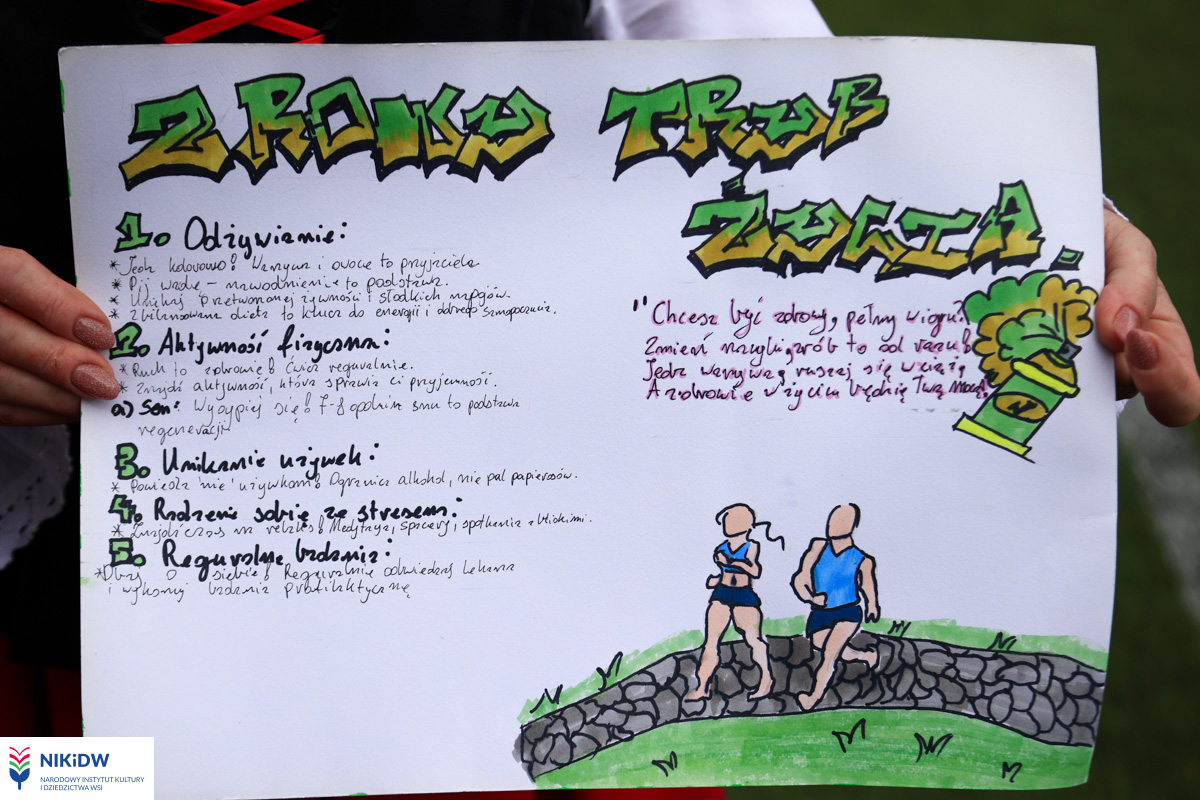 ZROWY TRYB
ŻYCIA
1. Odżywianie:
* Jedz kolorowo! Warzywa i owoce to przyjaciele
* Pij wodę – nawodnienie to podstawa.
* Unikaj przetworzonej żywności i słodkich napojów.
* Zbilansowana dieta to klucz do energii i dobrego samopoczucia.
2. Aktywność fizyczna:
* Ruch to zdrowie! Ćwicz regularnie.
* Znajdź aktywność, która sprawia ci przyjemność.
a) Sen: Wysypiaj się! 7-8 godzin snu to podstawa
regeneracji
3. Unikanie używek:
* Powiedz 'nie' używkom! Ogranicz alkohol, nie pal papierosów.
4. Radzenie sobie ze stresem:
* Znajdź czas na relaks! Medytacja, spacery, spotkania z bliskimi.
5. Regularne badania:
* Dbaj o siebie! Regularnie odwiedzaj lekarza
i wykonuj badania profilaktyczne
"Chcesz być zdrowy, pełny wigoru?
Zmień nawyki, zrób to od razu!
Jedz warzywa, ruszaj się w ciąż
A zdrowie w życiu będzie Twą mocą.
N
NIKiDW
NARODOWY INSTYTUT KULTURY
I DZIEDZICTWA WSI